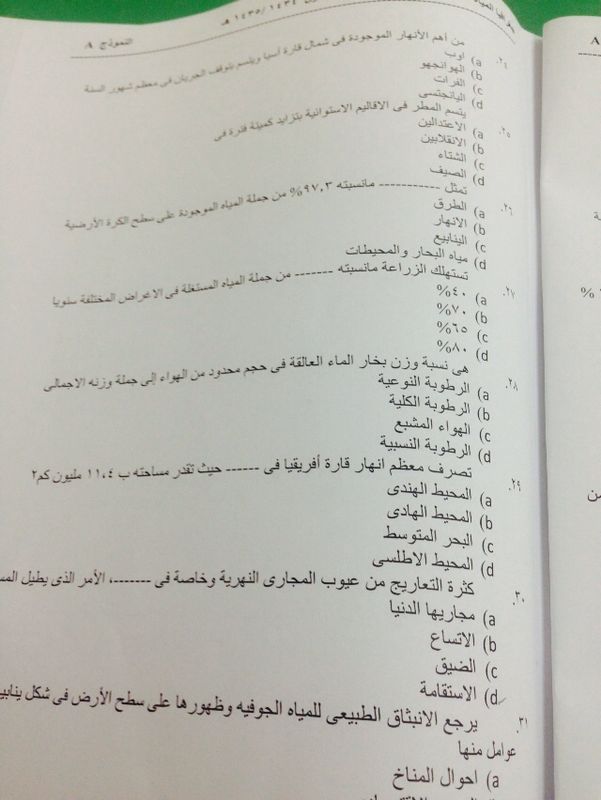 ١٤٣٥/١٤٣٤ هـ
النموذج A
٢٤. من أهم الأنهار الموجودة فى شمال قارة آسيا ويتسم بتوقف الجريان فى معظم شهور السنة
a) اوب
b) الهوانجهو
c) الفرات
d) اليانجتسى
٢٥. يتسم المطر فى الاقاليم الاستوائية بتزايد كميته فترة فى
a) الاعتدالين
b) الانقلابين
c) الشتاء
d) الصيف
٢٦. تمثل ---------- مانسبته ٩٧,٣% من جملة المياه الموجودة على سطح الكرة الأرضية
a) الطرق
b) الانهار
c) الينابيع
d) مياه البحار والمحيطات
٢٧. تستهلك الزراعة مانسبته ------- من جملة المياه المستغلة فى الاغراض المختلفة سنويا
a) ٤٠%
b) ٧٠%
c) ٦٥%
d) ٨٠%
٢٨. هى نسبة وزن بخار الماء العالقة فى حجم محدود من الهواء إلى جملة وزنه الاجمالى
a) الرطوبة النوعية
b) الرطوبة الكلية
c) الهواء المشبع
d) الرطوبة النسبية
٢٩. تصرف معظم انهار قارة أفريقيا فى ------ حيث تقدر مساحته ب ١١,٤ مليون كم٢
a) المحيط الهندى
b) المحيط الهادى
c) البحر المتوسط
d) المحيط الاطلسى
٣٠. كثرة التعاريج من عيوب المجارى النهرية وخاصة فى -------، الأمر الذى يطيل
a) مجاريها الدنيا
b) الاتساع
c) الضيق
d) الاستقامة
٣١. يرجع الانبثاق الطبيعى للمياه الجوفيه وظهورها على سطح الأرض فى شكل
عوامل منها
a) احوال المناخ